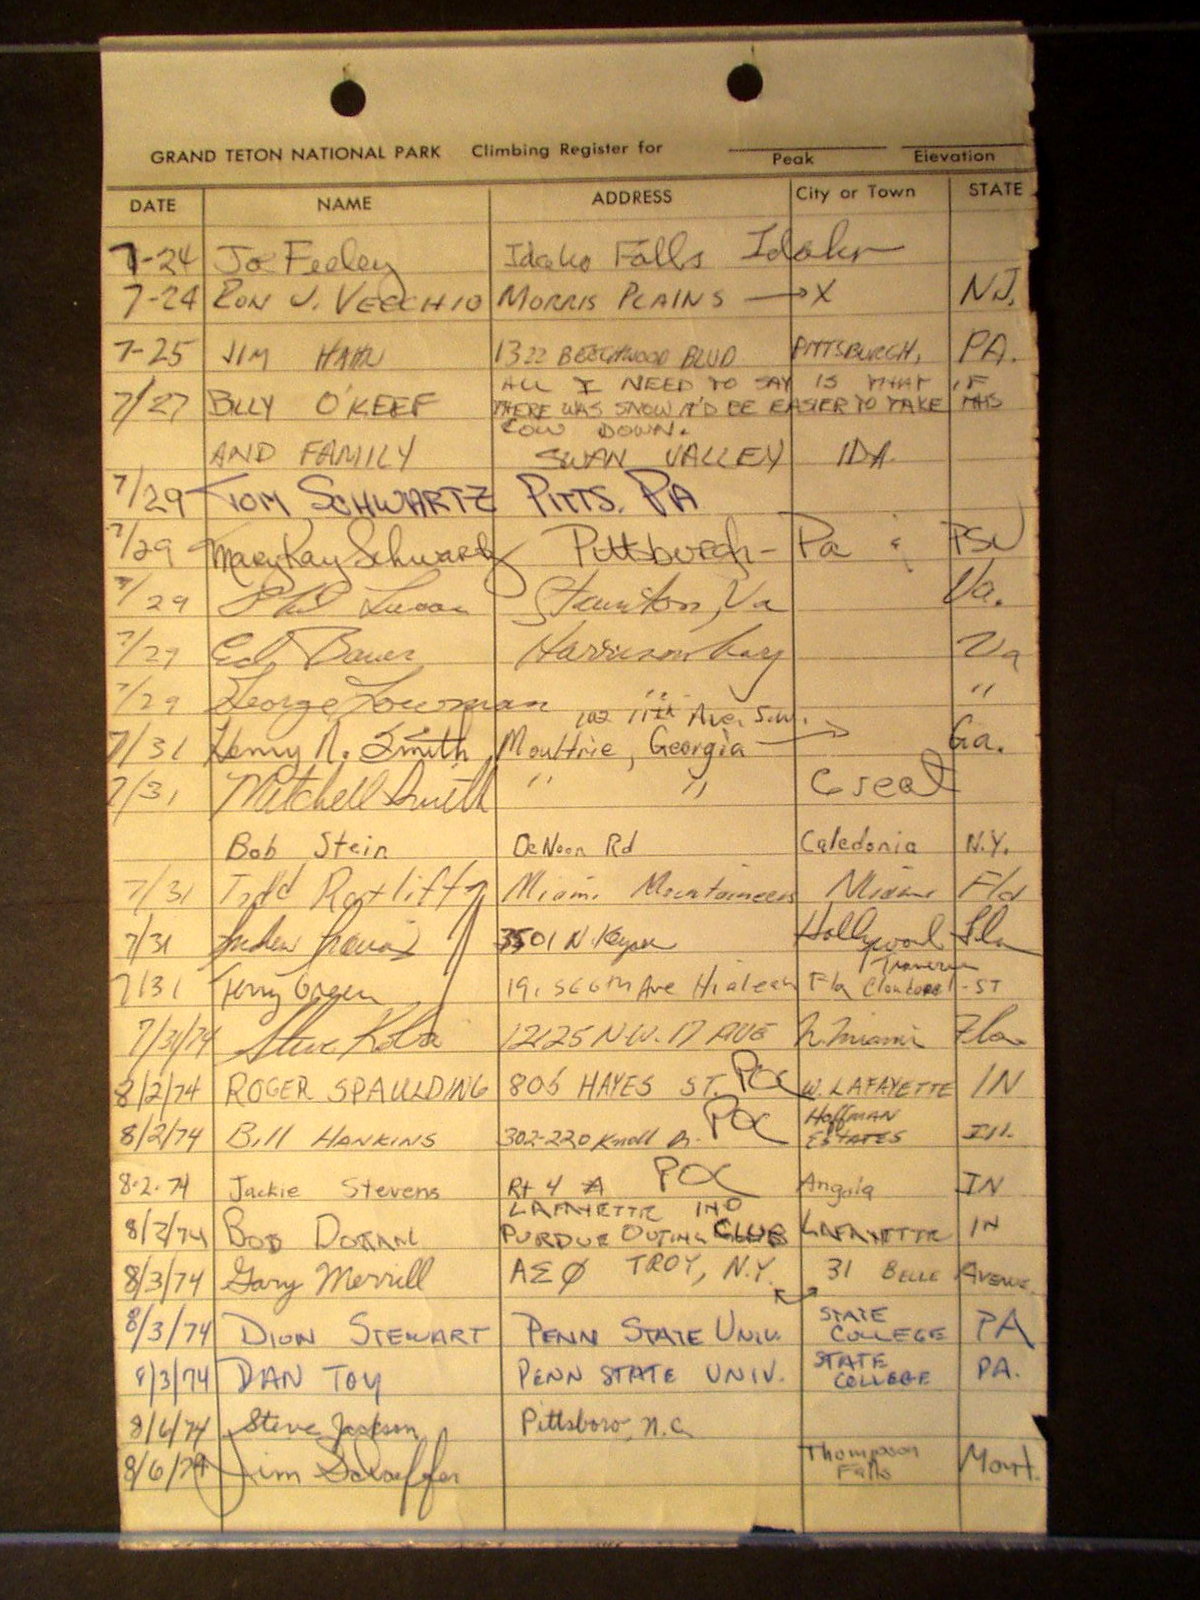 GRAND TETON NATIONAL PARK Climbing Register for
Peak Elevation
DATE NAME ADDRESS City or Town STATE
7-24 Joe Feeley Idaho Falls Idaho
7-24 RON J. VECCHIO MORRIS PLAINS → X NJ.
7-25 JIM HAHN 1322 BEECHWOOD BLVD PITTSBURGH, PA.
ALL I NEED TO SAY IS THAT IF
7/27 BILLY O'KEEF THERE WAS SNOW IT'D BE EASIER TO TAKE THIS
COW DOWN.
AND FAMILY SWAN VALLEY IDA
7/29 TOM SCHWARTZ PITTS. PA
7/29 Mary Kay Schwartz Pittsburgh - Pa & PSU
7/29 Phil Staunton, Va Va.
7/29 Ed Bauer Harrisonburg Va
7/29 George Lowman " "
102 11th Ave. S.W.
7/31 Henry N. Smith Moultrie, Georgia → Ga.
7/31 Mitchell Smith " "
Bob Stein DeNoon Rd Caledonia N.Y.
7/31 Todd Ratliff Miami Mountaineers Miami Fla
7/31 3501 N. Hollywood Fla
Traverse
7/31 Terry Green Ave Hialeah Fla - ST
7/31/74 Steve 12125 N.W. 17 AVE N. Miami Fla
8/2/74 ROGER SPAULDING 806 HAYES ST. POC W. LAFAYETTE IN
8/2/74 Bill HANKINS 302-220 Knoll Ln. POC Hoffman
ESTATES Ill.
8-2-74 Jackie Stevens Rt 4 A POC Angola IN
LAFAYETTE IND
8/2/74 BOB DORAN PURDUE OUTING CLUB LAFAYETTE IN
8/3/74 Gary Merrill ΑΣΦ TROY, N.Y. 31 BELLE AVENUE
8/3/74 DION STEWART PENN STATE UNIV. STATE
COLLEGE PA
8/3/74 DAN TOY PENN STATE UNIV. STATE
COLLEGE PA.
8/6/74 Steve Jackson Pittsboro, N.C.
8/6/74 Jim Schaeffer Thompson
Falls Mont.